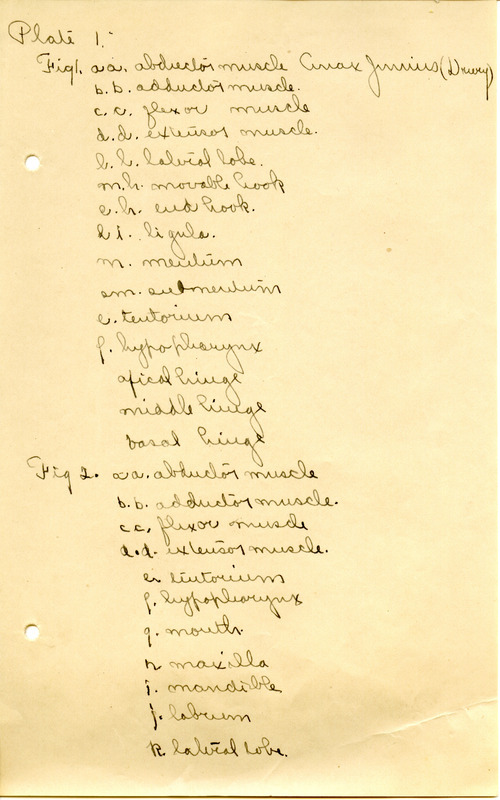 Plate 1.
Fig 1. a a. abductor muscle Anax Junius (Drury)
b. b. adductor muscle.
c. c. flexor muscle
d. d. extensor muscle.
l. l. lateral lobe.
m. h. movable hook
e. h. end hook.
l i. ligula.
m. mentum
sm. submentum
e. tentorium
f. hypopharynx
apical hinge
middle hinge
basal hinge
Fig 2. a a. abductor muscle
b. b. adductor muscle.
c c. flexor muscle
d. d. extensor muscle.
e. tentorium
f. hypopharynx
g. mouth.
h. maxilla
i. mandible
j. labrum
k. lateral lobe.